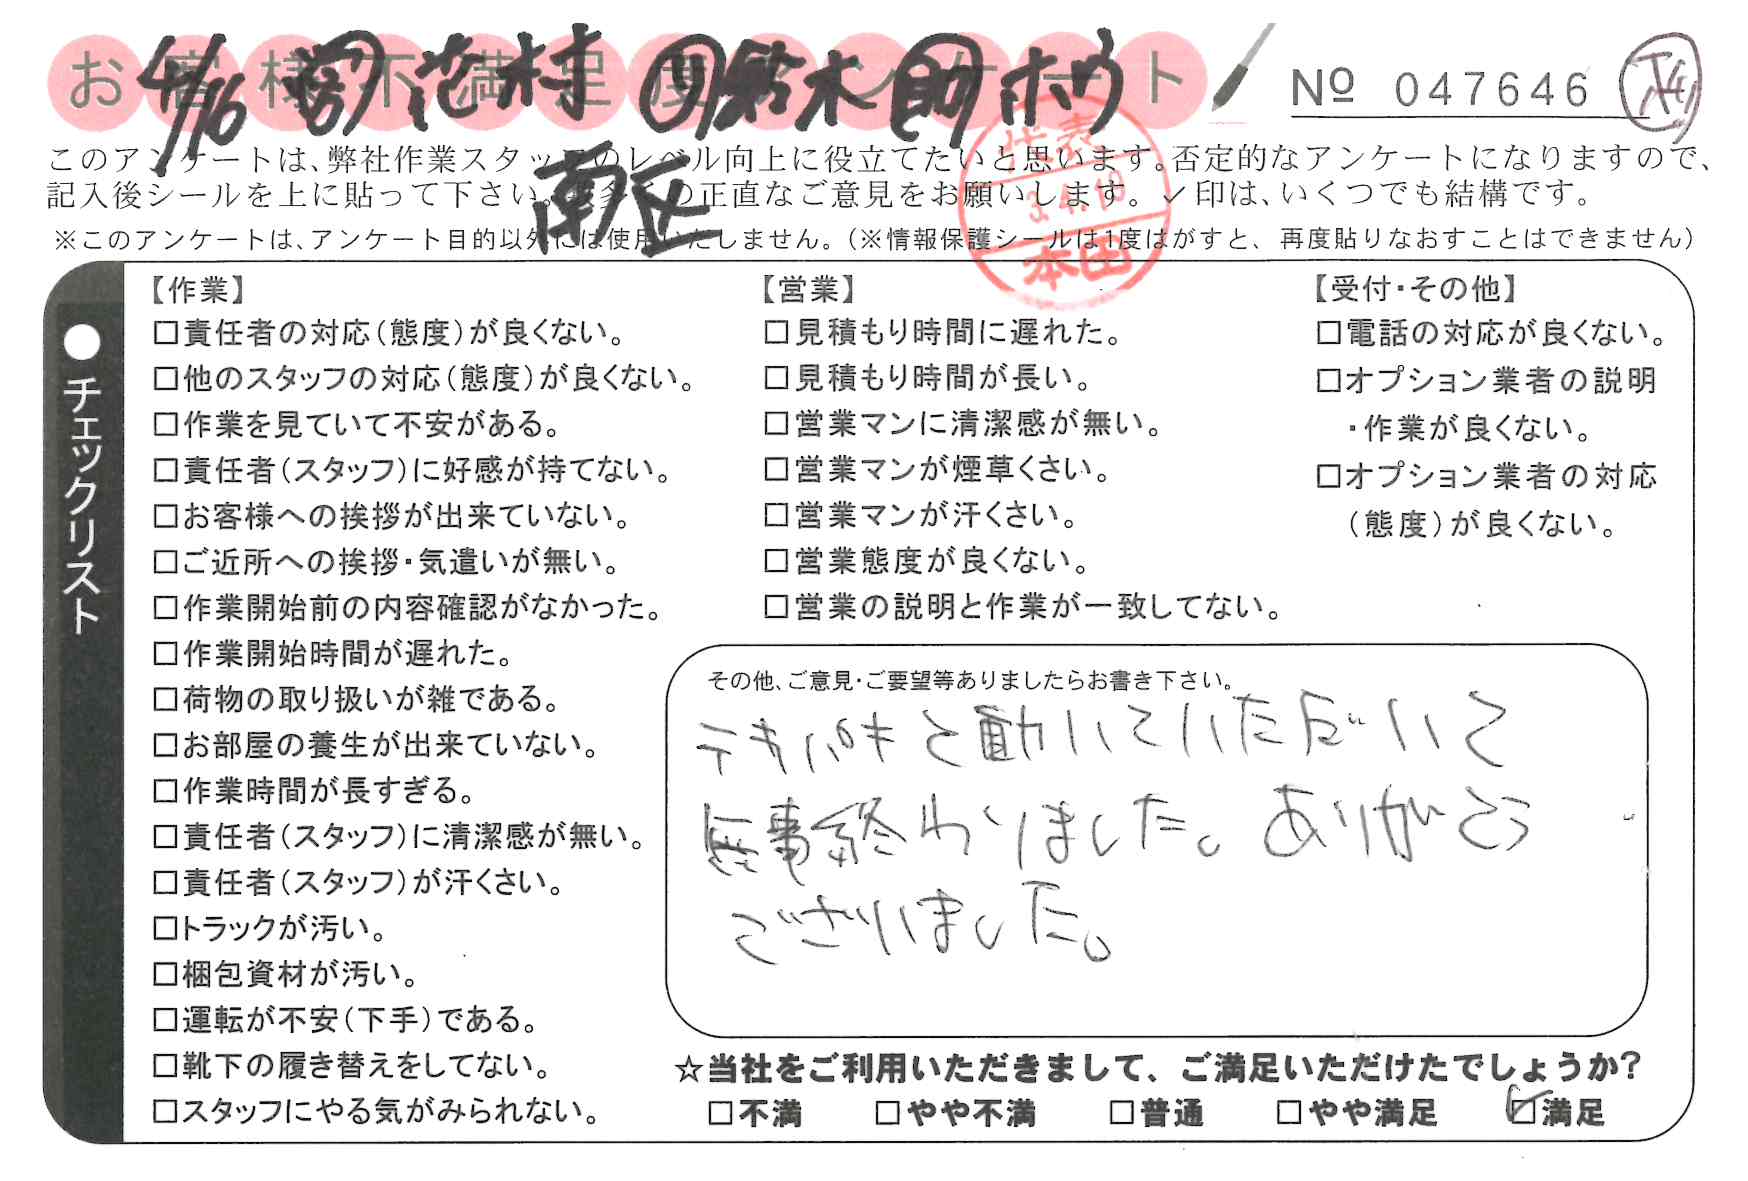 お客様不満足度アンケート
4/16 労 花村 ﾘ 鈴木 助 ホウ
南区
Nº 047646
代表
3.4.18
本田
このアンケートは、弊社作業スタッフのレベル向上に役立てたいと思います。否定的なアンケートになりますので、
記入後シールを上に貼って下さい。数多くの正直なご意見をお願いします。✓印は、いくつでも結構です。
※このアンケートは、アンケート目的以外には使用いたしません。(※情報保護シールは1度はがすと、再度貼りなおすことはできません)
●チェックリスト
【作業】
□責任者の対応(態度)が良くない。
□他のスタッフの対応(態度)が良くない。
□作業を見ていて不安がある。
□責任者(スタッフ)に好感が持てない。
□お客様への挨拶が出来ていない。
□ご近所への挨拶・気遣いが無い。
□作業開始前の内容確認がなかった。
□作業開始時間が遅れた。
□荷物の取り扱いが雑である。
□お部屋の養生が出来ていない。
□作業時間が長すぎる。
□責任者(スタッフ)に清潔感が無い。
□責任者(スタッフ)が汗くさい。
□トラックが汚い。
□梱包資材が汚い。
□運転が不安(下手)である。
□靴下の履き替えをしてない。
□スタッフにやる気がみられない。
【営業】
□見積もり時間に遅れた。
□見積もり時間が長い。
□営業マンに清潔感が無い。
□営業マンが煙草くさい。
□営業マンが汗くさい。
□営業態度が良くない。
□営業の説明と作業が一致してない。
【受付・その他】
□電話の対応が良くない。
□オプション業者の説明
・作業が良くない。
□オプション業者の対応
(態度)が良くない。
その他、ご意見・ご要望等ありましたらお書き下さい。
テキパキと動いていただいて
無事終わりました。ありがとう
ございました。
☆当社をご利用いただきまして、ご満足いただけたでしょうか?
□不満 □やや不満 □普通 □やや満足 ☑満足